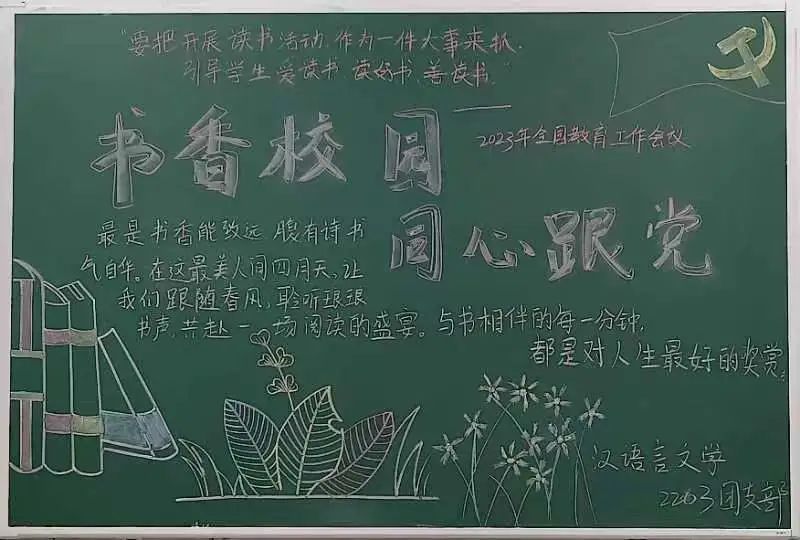 “要把开展读书活动作为一件大事来抓.
引导学生爱读书、读好书、善读书.”
——2023年全国教育工作会议
书香校园
同心跟党
最是书香能致远 腹有诗书
气自华。在这最美人间四月天,让
我们跟随春风,聆听琅琅
书声,共赴一场阅读的盛宴。与书相伴的每一分钟,
都是对人生最好的奖赏。
汉语言文学
2203团支部